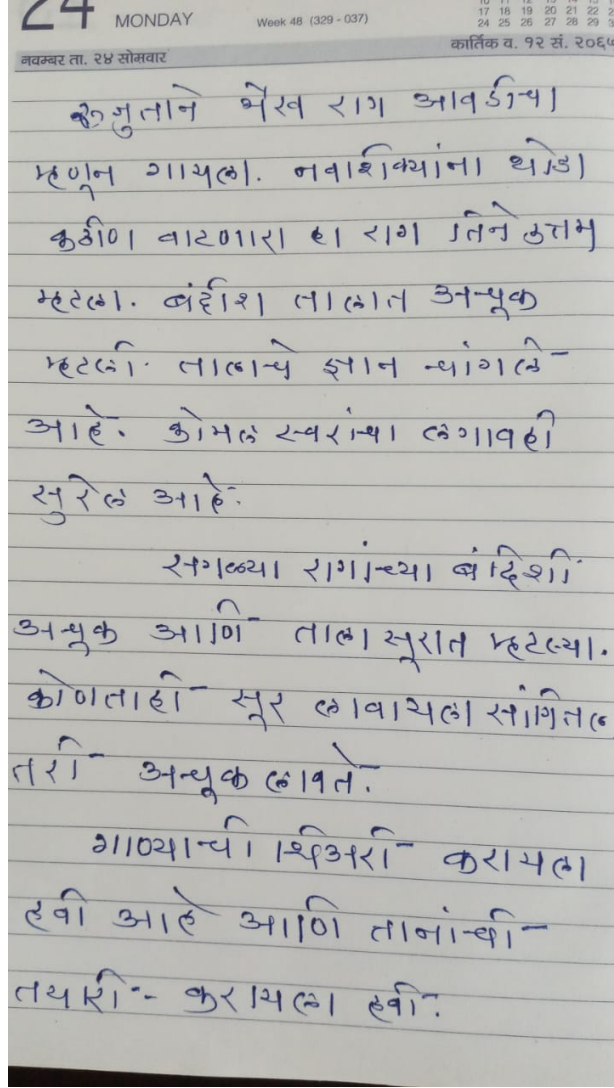 24 MONDAY Week 48 (329 - 037)
17 18 19 20 21 22
24 25 26 27 28 29
नवम्बर ता. २४ सोमवार कार्तिक व. १२ सं. २०६५
ऋजुताने भैरव राग आवडीचा
म्हणून गायला. नवशिक्यांना थोडा
कठीण वाटणारा हा राग तिने उत्तम
म्हटला. बंदीश तालात अचूक
म्हटली. तालाचे ज्ञान चांगले
आहे. कोमल स्वरांचा लगावही
सुरेल आहे.
सगळ्या रागांच्या बंदिशी
अचूक आणि ताला सूरात म्हटल्या.
कोणताही सूर लावायला सांगितल
तरी अचूक लावते.
गाण्याची थिअरी करायला
हवी आहे आणि तानांची
तयारी करायला हवी.